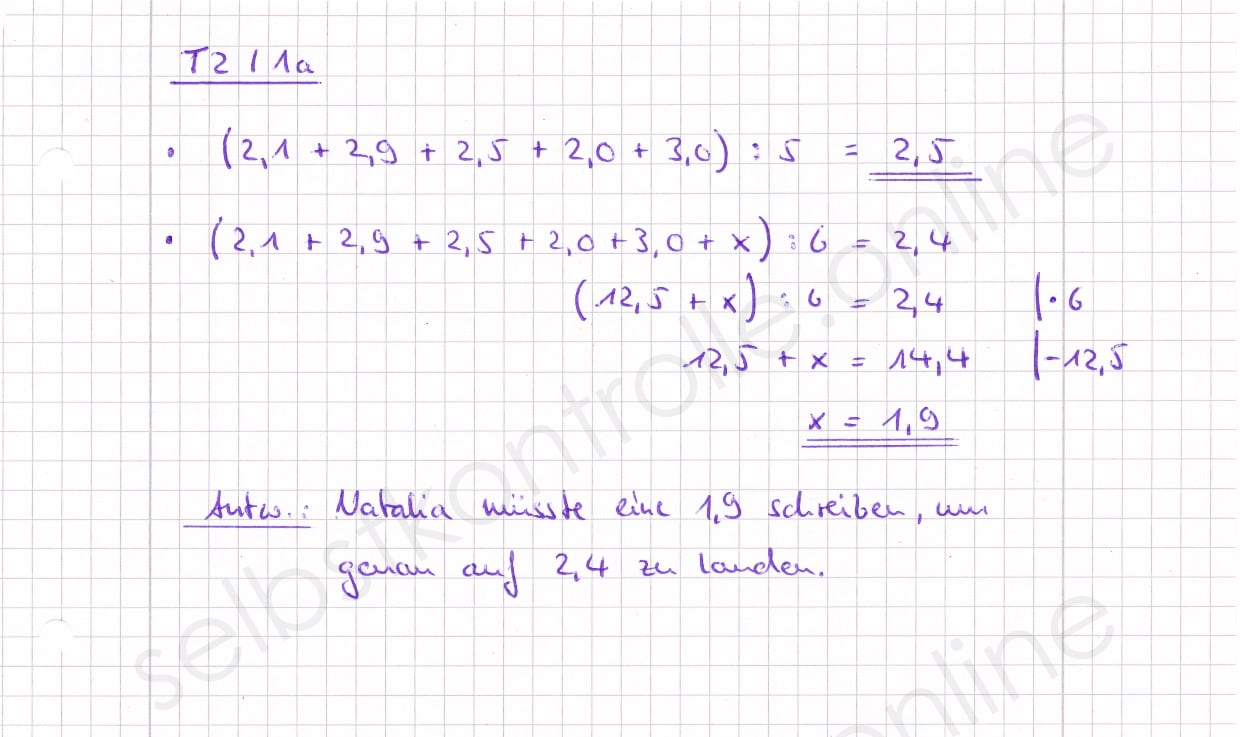 T2 / 1a
• (2,1 + 2,9 + 2,5 + 2,0 + 3,0) : 5 = 2,5
• (2,1 + 2,9 + 2,5 + 2,0 + 3,0 + x) : 6 = 2,4
(12,5 + x) : 6 = 2,4 |· 6
12,5 + x = 14,4 |-12,5
x = 1,9
Antw.: Natalia müsste eine 1,9 schreiben, um
genau auf 2,4 zu landen.
selbstkontrolle.online
online